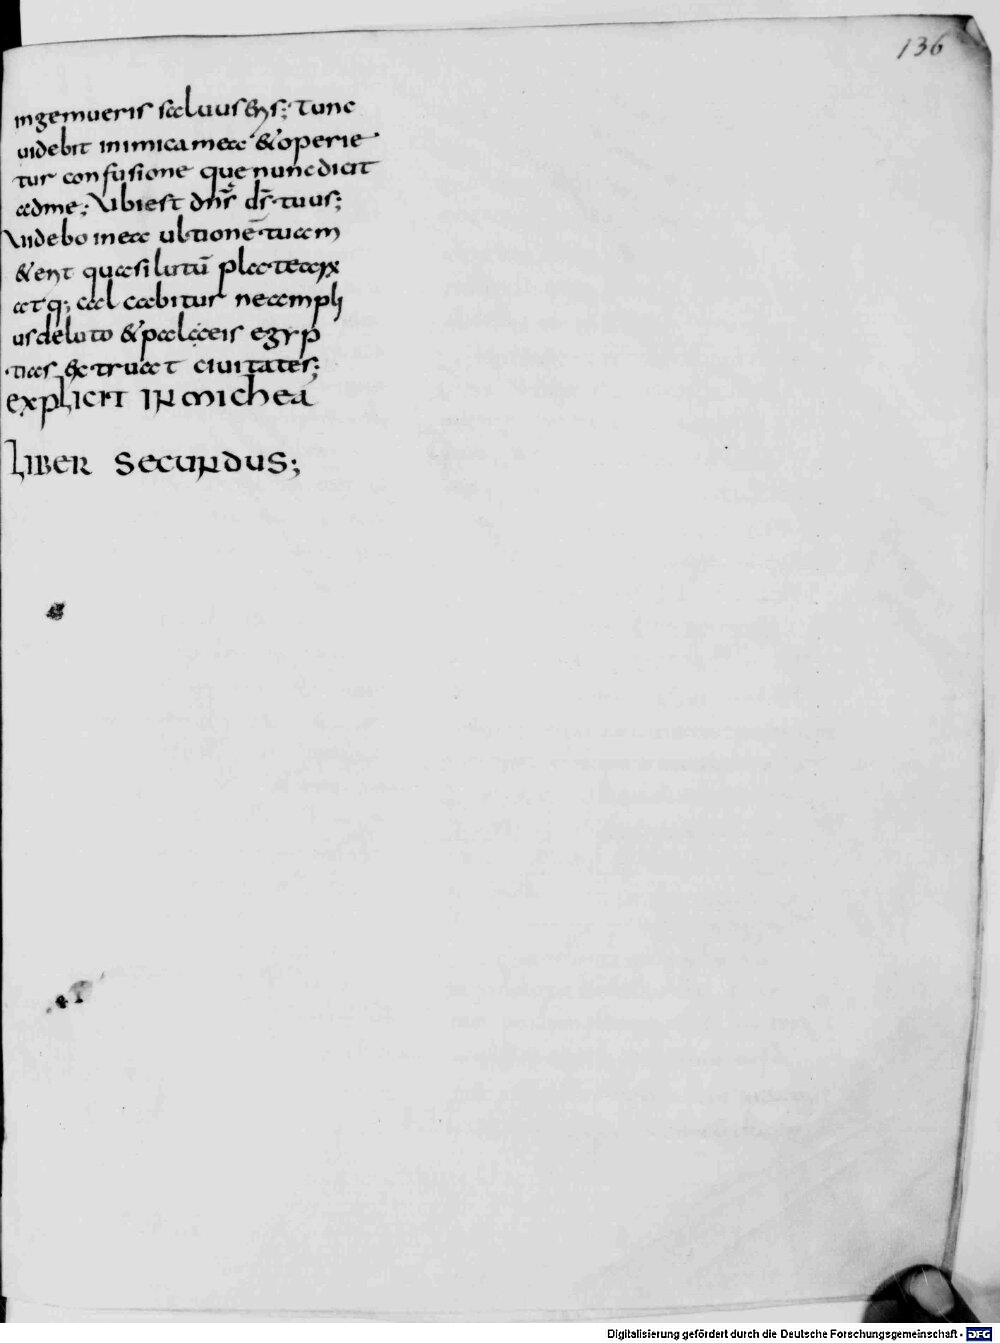 136
ingemueris saluus eris; Tunc
uidebit inimica mea & operie
tur confusione que nunc dicit
adme; Vbi est dn̄s ds̄ tuus;
Videbo in ea ultionē tuam
& erit quasi lutū plateaR
atq; calcabitur ne ampli
us de luto & paleis egyp
tias extruat ciuitates;
explicit in michea
liber secundus;
Digitalisierung gefördert durch die Deutsche Forschungsgemeinschaft - DFG